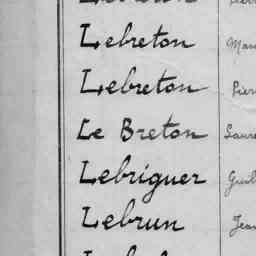 Lebreton
Lebreton Pier
Le Breton
Lebriguer Guil
Lebrun Jean